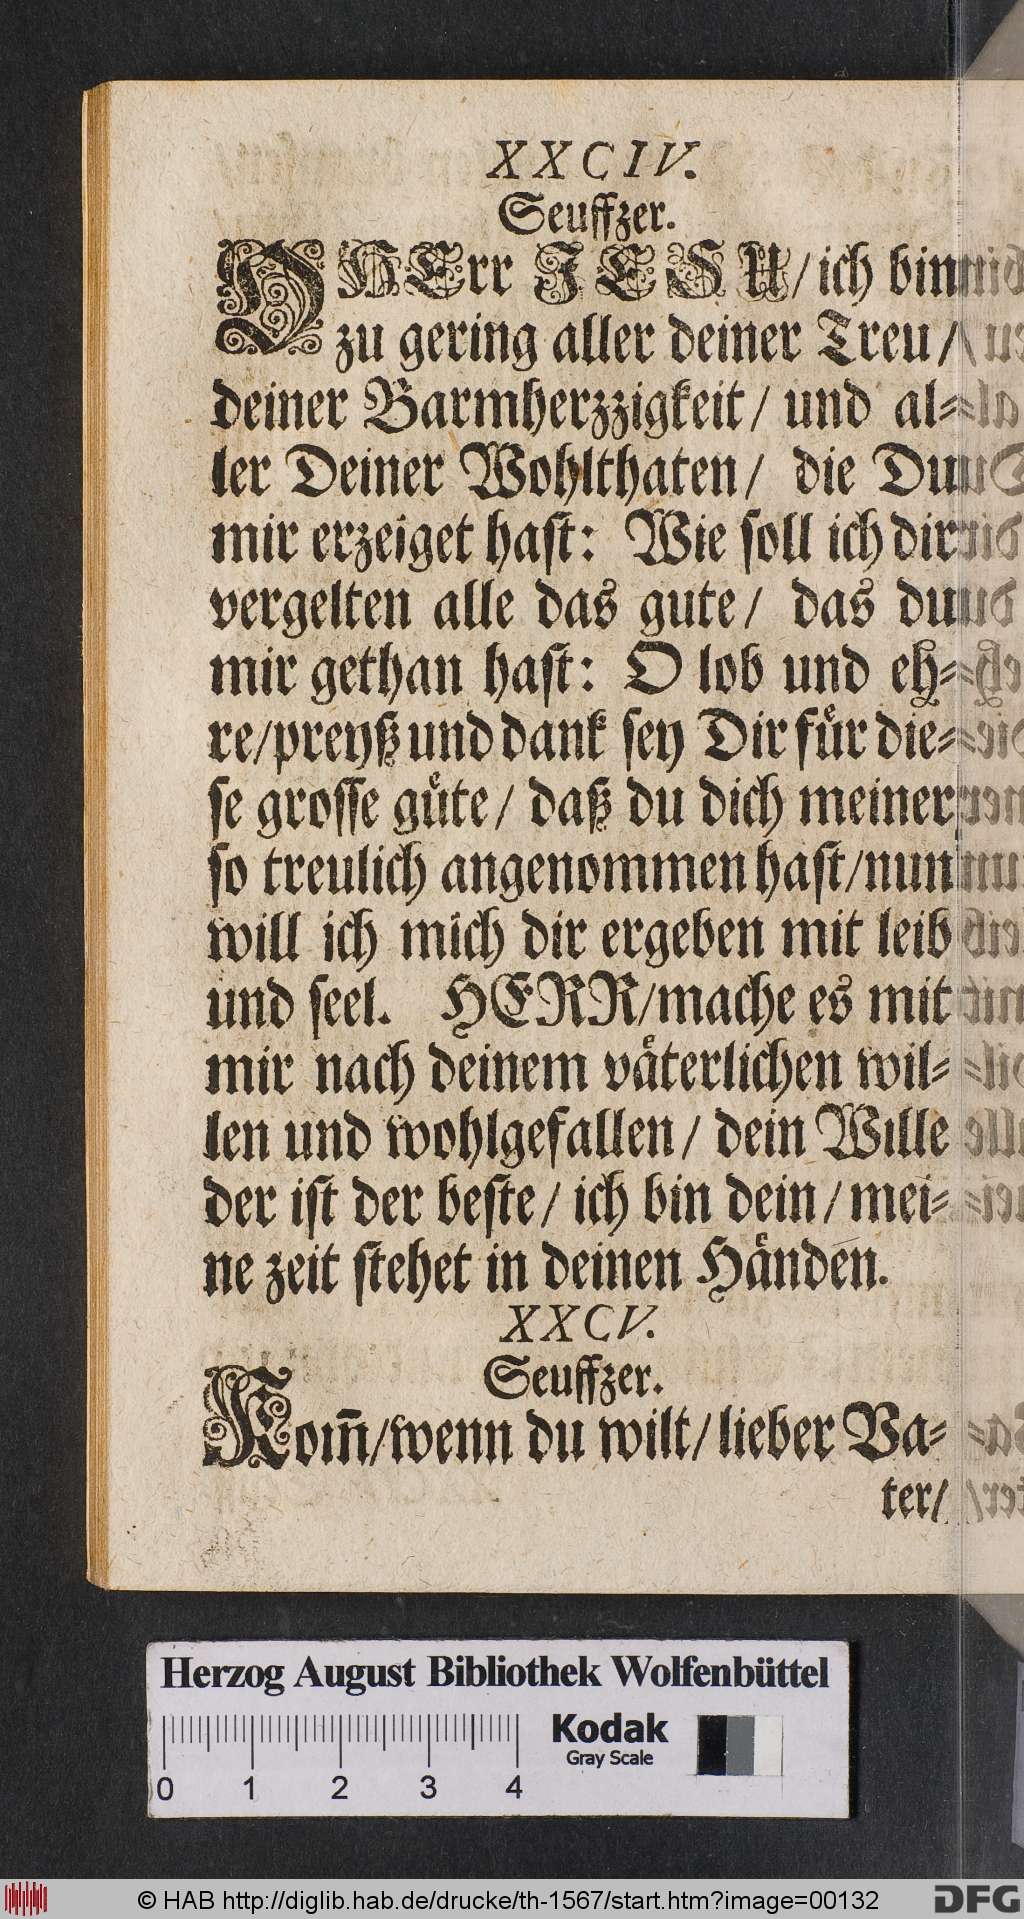 XXCIV.
Seuffzer.
O HErr JESU/ ich bin
zu gering aller deiner Treu/
deiner Barmherzzigkeit/ und al-
ler Deiner Wohlthaten/ die Du
mir erzeiget hast: Wie soll ich dir
vergelten alle das gute/ das du
mir gethan hast: O lob und eh-
re/preyß und dank sey Dir für die-
se grosse güte/ daß du dich meiner
so treulich angenommen hast/nun
will ich mich dir ergeben mit leib
und seel. HERR/mache es mit
mir nach deinem väterlichen wil-
len und wohlgefallen/ dein Wille
der ist der beste/ ich bin dein/ mei-
ne zeit stehet in deinen Händen.
XXCV.
Seuffzer.
Kom̃/wenn du wilt/ lieber Va-
ter/
Herzog August Bibliothek Wolfenbüttel
Kodak
Gray Scale
0 1 2 3 4
© HAB http://diglib.hab.de/drucke/th-1567/start.htm?image=00132
DFG